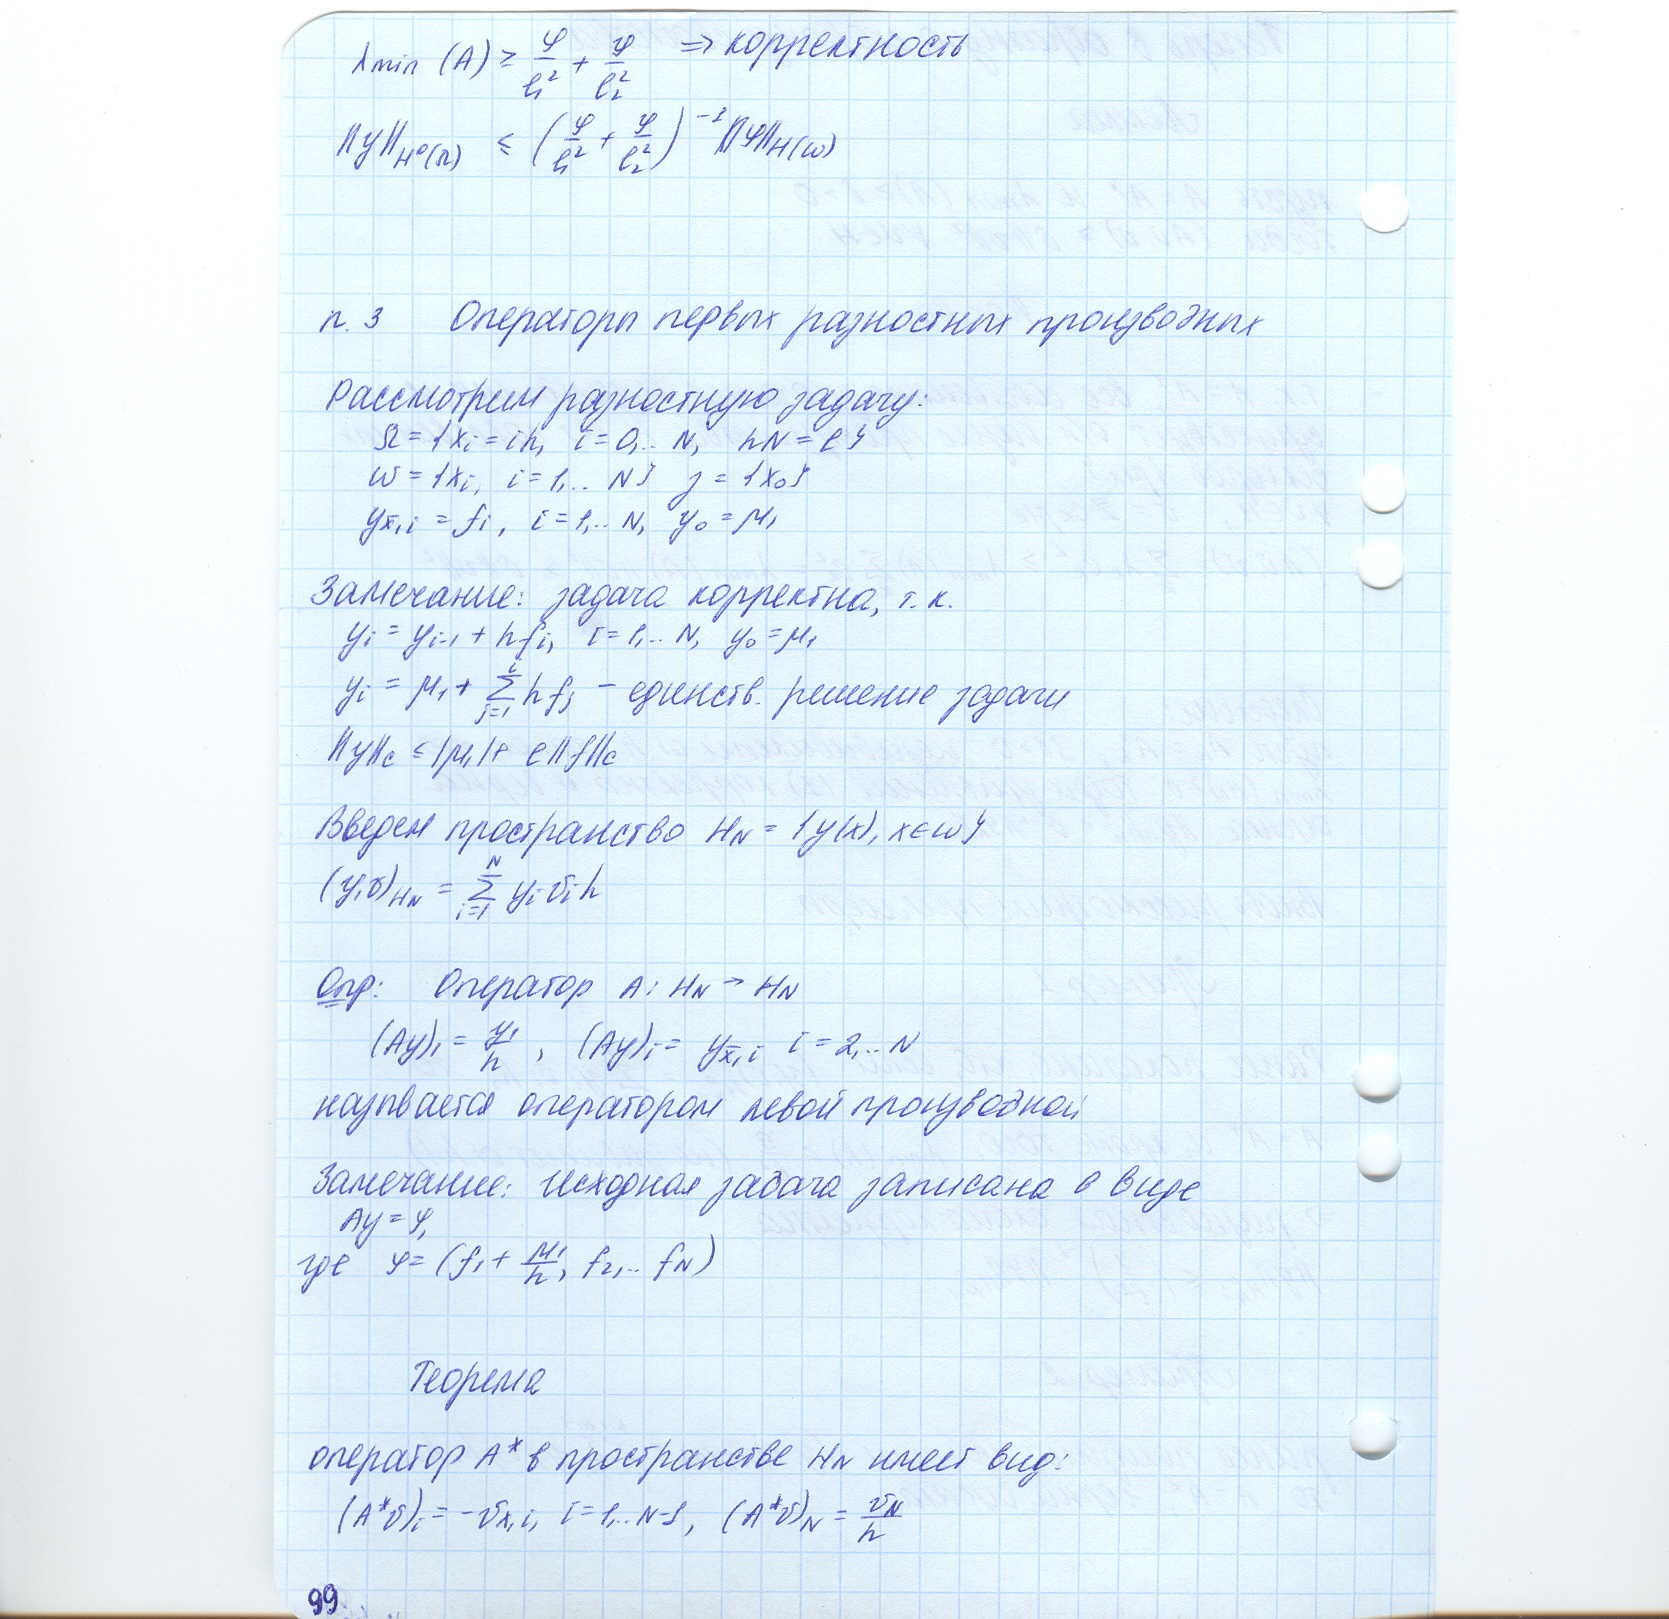 λmin (A) ≥ φ/l₁² + φ/l₂² ⇒ корректность
||y||H⁰(Ω) ≤ (φ/l₁² + φ/l₂²)⁻¹ ||φ||H(ω)
п. 3 Операторы первых разностных производных
Рассмотрим разностную задачу:
Ω = {xi = ih, i = 0,.. N, hN = l}
ω = {xi, i = 1,.. N} γ = {x₀}
yx̄,i = fi, i = 1,.. N, y₀ = μ₁
Замечание: задача корректна, т. к.
yi = yi-1 + hfi, i = 1,.. N, y₀ = μ₁
yi = μ₁ + Σ(j=1..i) hfj – единств. решение задачи
||y||c ≤ |μ₁| + l||f||c
Введем пространство HN = {y(x), x∈ω}
(y,v)HN = Σ(i=1..N) yi vi h
Опр: Оператор A: HN → HN
(Ay)₁ = y₁/h, (Ay)i = yx̄,i i = 2,.. N
называется оператором левой производной
Замечание: исходная задача записана в виде
Ay = φ,
где φ = (f₁ + μ₁/h, f₂,.. fN)
Теорема
оператор A* в пространстве HN имеет вид:
(A*v)i = -vx,i, i = 1,.. N-1, (A*v)N = vN/h
99